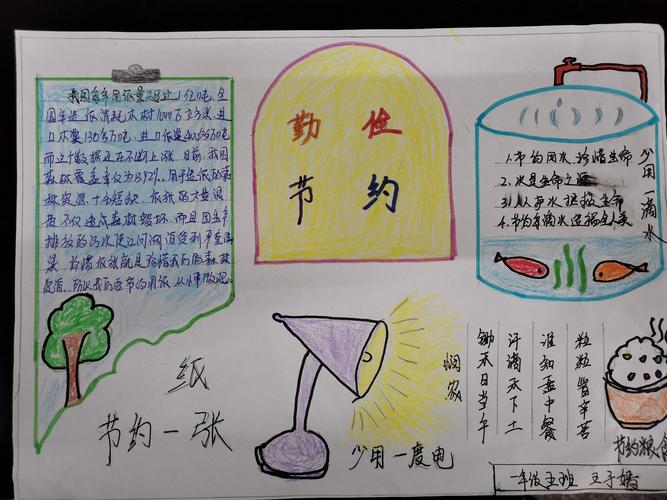 我国每年用纸量超过1亿吨,全
国年造纸消耗木材1000万立方米,进
口木浆130多万吨,进口纸浆400多万吨
而这个数据还在不断上涨。目前,我国
森林覆盖率仅为13.92%。用于造纸的森
林资源十分短缺。纸张的大量浪
费不仅造成森林毁坏,而且因生产
排放的污水使江河湖泊受到严重污
染 珍惜纸张就是珍惜我们的森林
资源,所以我们要节约用纸从小事做起。
纸
节约一张
勤俭
节约
少用一度电
1.节约用水,珍惜生命
2.水是生命之源
3.人人护水
4.节约每滴水造福全人类
少用一滴水
悯农
锄禾日当午
汗滴禾下土
谁知盘中餐
粒粒皆辛苦
节约粮食
一年级五班 王子嫣